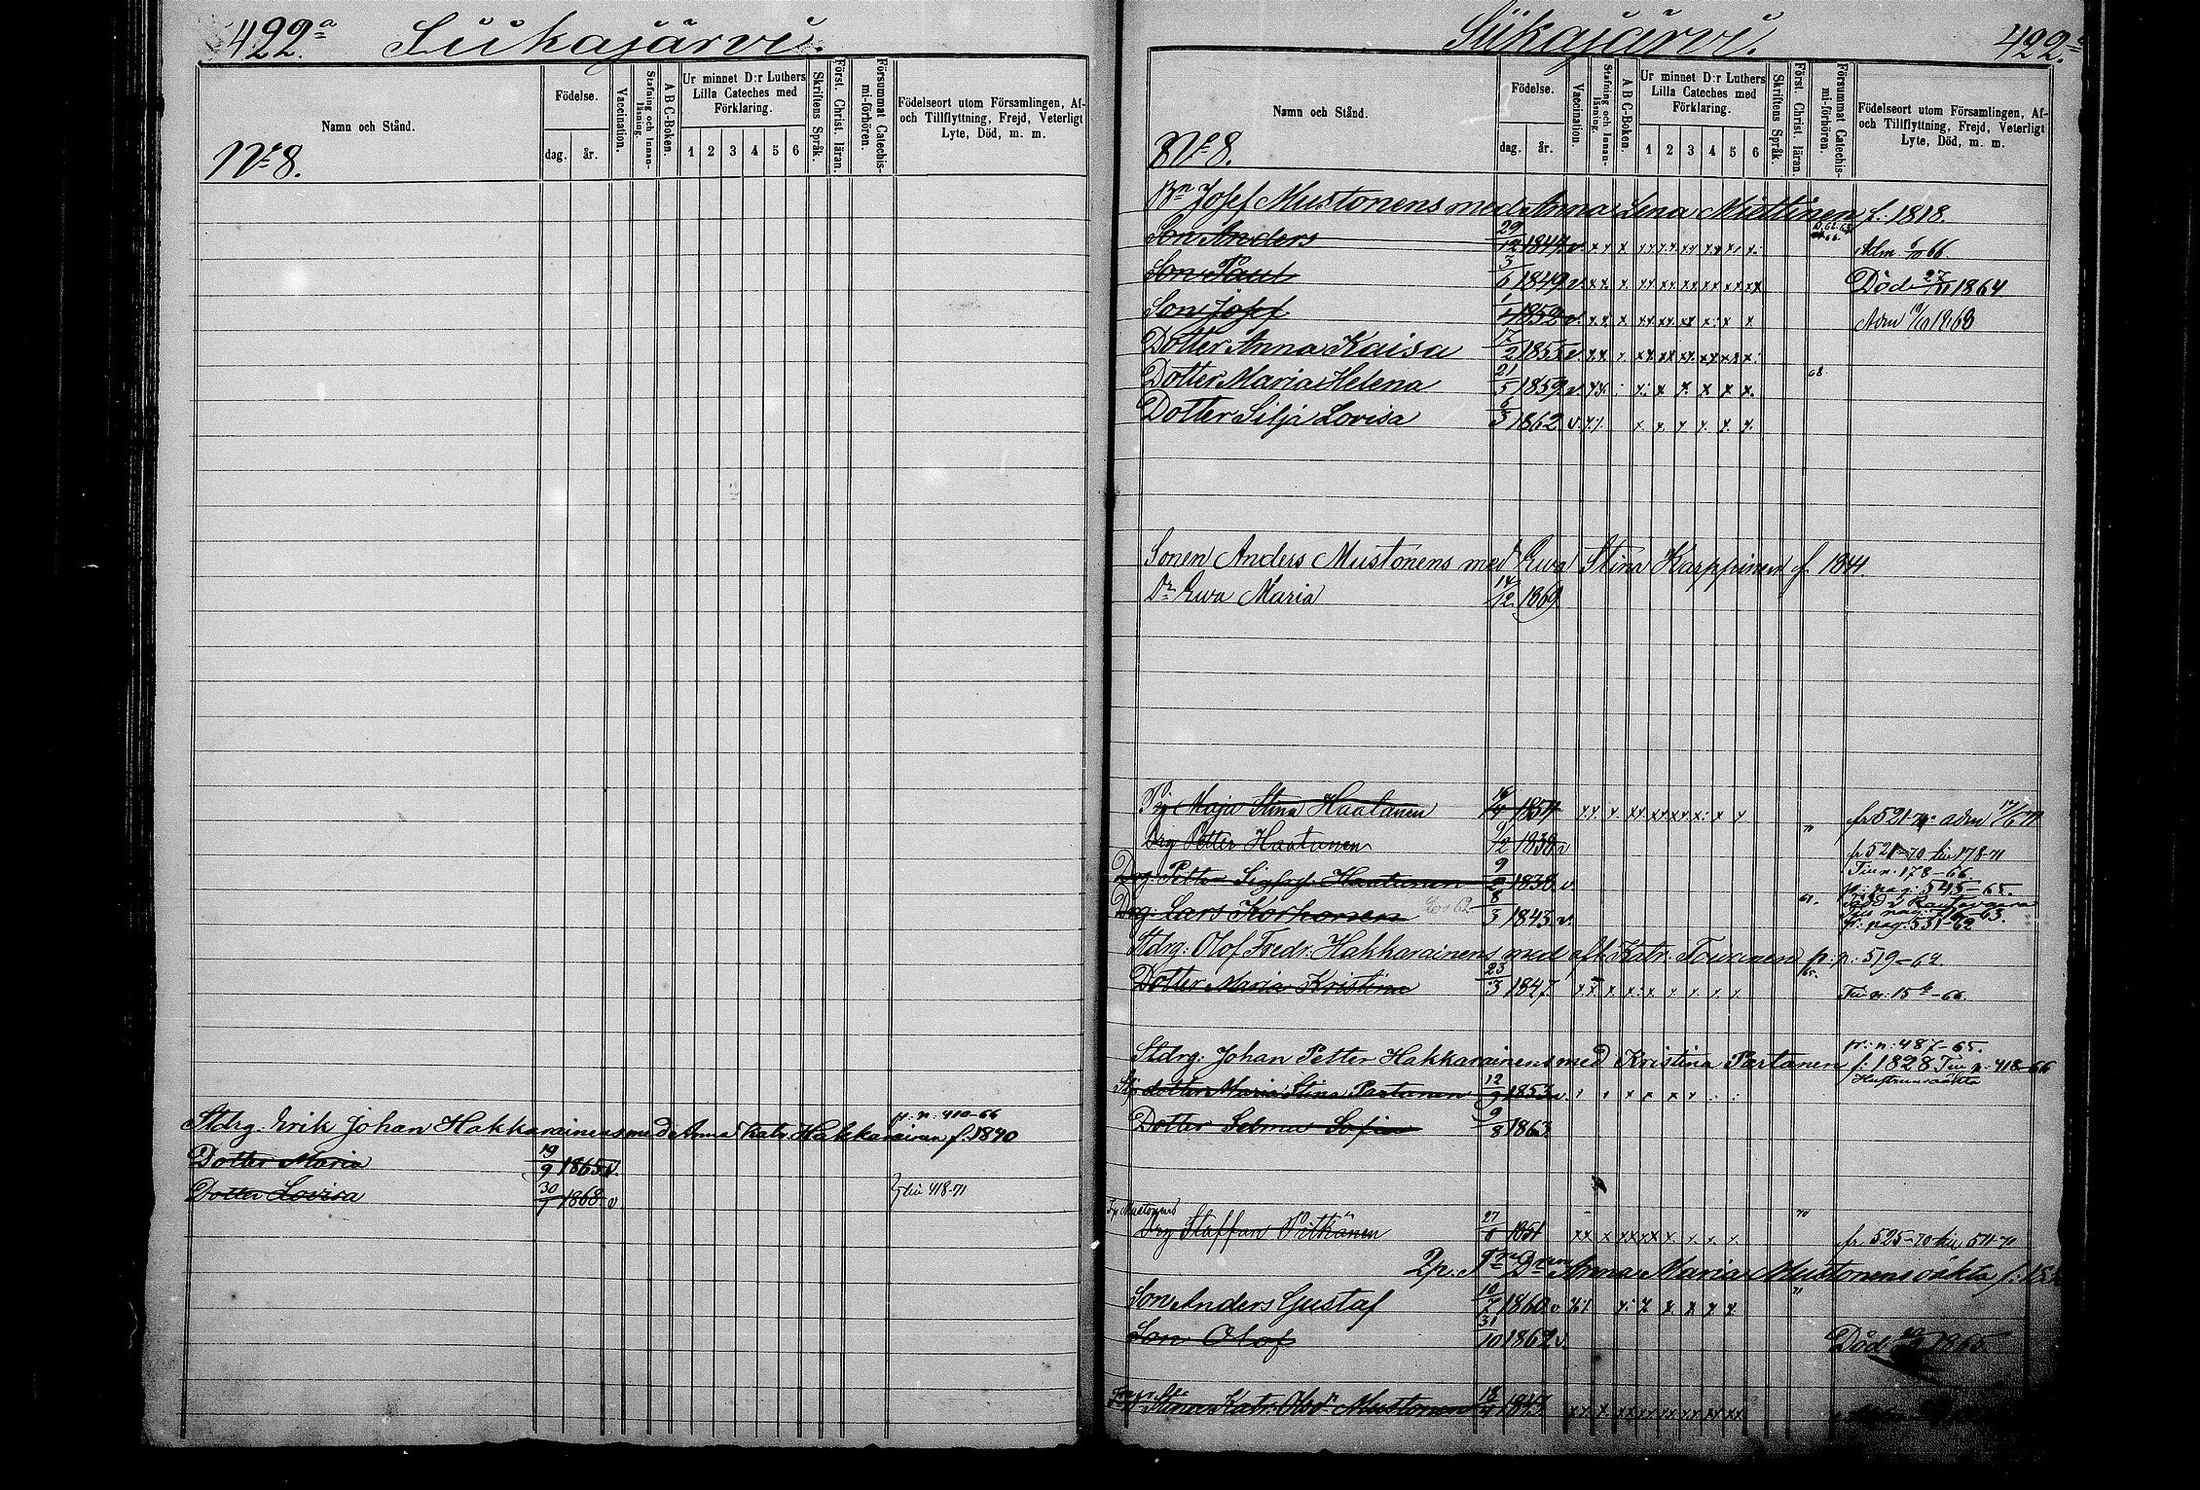 422.a Siikajärvi.
Namn och Stånd.
Födelse.
dag. år.
Vaccination.
Stafning och Innanläsning.
A B C-Boken.
Ur minnet D:r Luthers Lilla Cateches med Förklaring.
1 2 3 4 5 6
Skriftens Språk.
Först. Christ. läran.
Försummat Catechismi-förhören.
Födelseort utom Församlingen, Af- och Tillflyttning, Frejd, Veterligt Lyte, Död, m. m.
No 8.
p: n: 410-66
Stdrg. Erik Johan Hakkarainens med Anna Katr. Hakkarainen f. 1840
Dotter Maria 19/9 1865 v.
Dotter Lovisa 30/7 1868 v till 418-71
Siikajärvi. 422.a
Namn och Stånd.
Födelse.
dag. år.
Vaccination.
Stafning och Innanläsning.
A B C-Boken.
Ur minnet D:r Luthers Lilla Cateches med Förklaring.
1 2 3 4 5 6
Skriftens Språk.
Först. Christ. läran.
Försummat Catechismi-förhören.
Födelseort utom Församlingen, Af- och Tillflyttning, Frejd, Veterligt Lyte, Död, m. m.
No 8.
Bn Josef Mustonens med Anna Lena Miettinen f. 1818.
Son Anders 29/12 1844 v. Adm 66.
Son Paul 3/6 1849 v. Död 27/10 1864
Son Josef 1852 v. Adm 1868
Dotter Anna Kaisa 17/2 1855 v.
Dotter Maria Helena 21/5 1859 v. 68.
Dotter Silja Lovisa 6/3 1862 v.
Sonen Anders Mustonens med Ewa Stina Karppinen f. 1841.
Dr Ewa Maria 14/12 1869
Pig Maja Stina Haatanen 1854 fr 521-70 adm
Drg Petter Haatanen 6/2 1838 v fr 521-70 till 178-71
Drg. Petter Sigfr. Haatanen 9/2 1838 v Till n. 178-66
fr: pag: 545-65.
Drg. Lars Korhonen 8/3 1843 v. fr: pag: 531-62
Stdrg: Olof Fredr. Hakkarainens med afl. Katr. Toivanen p: p: 519-62.
Dotter Maria Kristina 23/3 1847. Till n: 15-66.
fr: n: 487-65.
Stdrg: Johan Petter Hakkarainens med Kristina Partanen f: 1828 Till n. 418-66
Stjdotter Maria Stina Partanen 12/9 1853 v. Hustruns oäkta
Dotter Selma Sofia 9/8 1863
Drg Staffan Pitkänen 27/8 1851 fr. 525-70 till 511-71
Anna Maria Mustonens oäkta
Son Anders Gustaf 10/7 1860 v.
Son Olof 31/10 1862 v. Död 1865
Stina Katr. Mustonen 18 1843